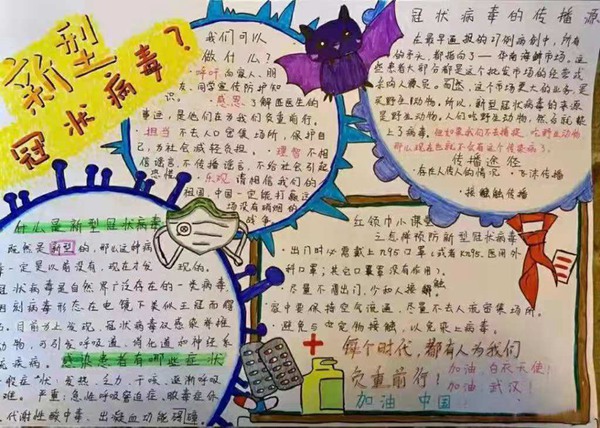 新型
冠状病毒?
我们可以
做什么?
·呼吁向家人、朋
友、同学宣传防护知
识。·感恩了解医医生的
事迹,是他们在为我们负重前行。
·担当不去人口密集场所,保护自
己,为社会减轻负担。·理智不相
信谣言,不传播谣言,不给社会引起
恐慌。·乐观请相信我们的
祖国,中国一定能打赢这
场没有硝烟的
战争
冠状病毒的传播源
在最早通报的27例病例中,所有
的矛头,都指向了——华南海鲜市场。这
些患者大部分都是这个批发市场的经营式
来向人
是野生动物,所以,新型冠状病毒的来源
是野生动物。人们吃野生动物,然后就染
上了病毒。但如果我们不去捕捉、吃野生动物
那么现在也就不会有这个传染病了。
传播途径
·存在人传人的情况 ·飞沫传播
·接触传播
什么是新型冠状病毒
既然是新型的,那么这种病
毒一定是以前没有,现在才发现的。
冠状病毒是自然界广泛存在的一类病毒,
因刻病毒形态在电镜下类似王冠而得
名。目前为止发现,冠状病毒仅感染脊椎
动物,可引发呼吸道、消化道和神经系
统疾病。感染患者有哪些症状
一般症"状:发热、乏力、干咳、逐渐呼吸
难。严重:急性呼吸窘迫症、脓毒症休
代谢性酸中毒、出凝血功能障碍
红领巾小课堂
三怎样预防新型冠状病毒
·出门时必需戴上n95口罩(或者Kn95、医用外
科口罩;其它口罩害没有作用)。
·尽量不清出门,少和人接触。
·家中要保持空气流通,尽量不去人流密集场所。
避免与宠物接触,以免染上病毒。
每个时代,都有人为我们
负重前行!
加油 白衣天使!
加油 武汉!
加油 中国